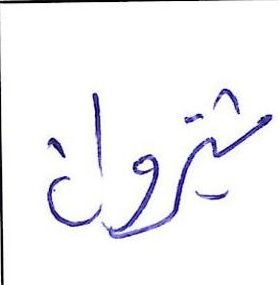 شتيروان